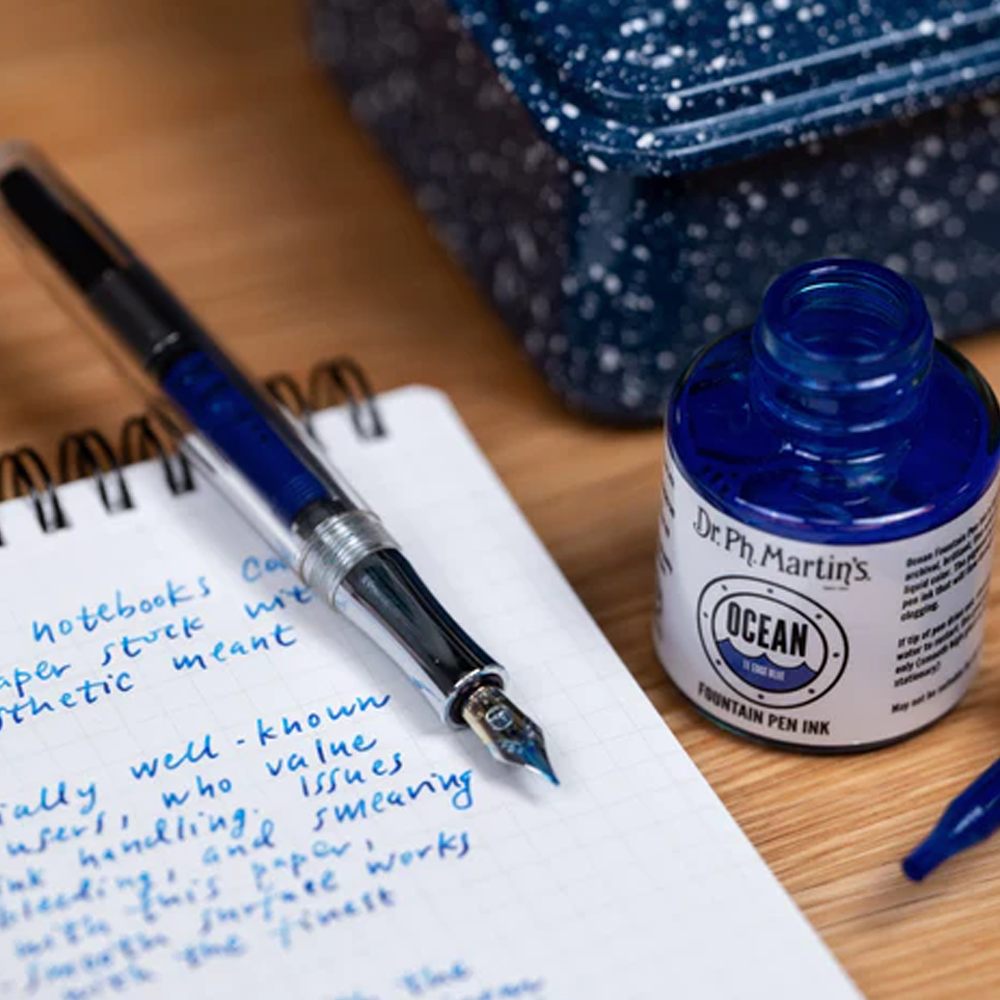 notebooks
aper stock wit
sthetic meant
ially well-known
users, who value
ink handling. Issues
bleeding, and smearing
with this paper,
smooth surface works
with the finest
the
Dr. Ph. Martin's
OCEAN
FOUNTAIN PEN INK
Ocean Fountain Pen
archival, brilliant
liquid color. The
pen ink that will
clogging.
If tip of pen dries
water to restart
only
stationery)
May not be suitable